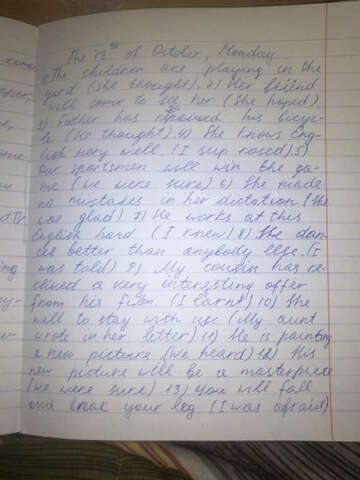 The 13th of October, Monday
1) The children are playing in the
yard (she thought). 2) Her friend
will come to see her (She hoped).
3) Father has repaired his bicyc-
le (He thought). 4) She knows Eng-
lish very well (I supposed). 5)
Our sportsmen will win the ga-
me (we were sure) 6) She made
no mistakes in her dictation (She
was glad). 7) He works at this
English hard (I knew) 8) She dan-
ces better than anybody else. (I
was told) 9) My cousin has re-
cieved a very interesting offer
from his firm. (I larnt) 10) She
will to stay with use (My aunt
wrote in her letter) 11) He is painting
a new picture (we heard) 12) His
new picture will be a masterpiece
(we were sure) 13) You will fall
and break your leg (I was afraid)